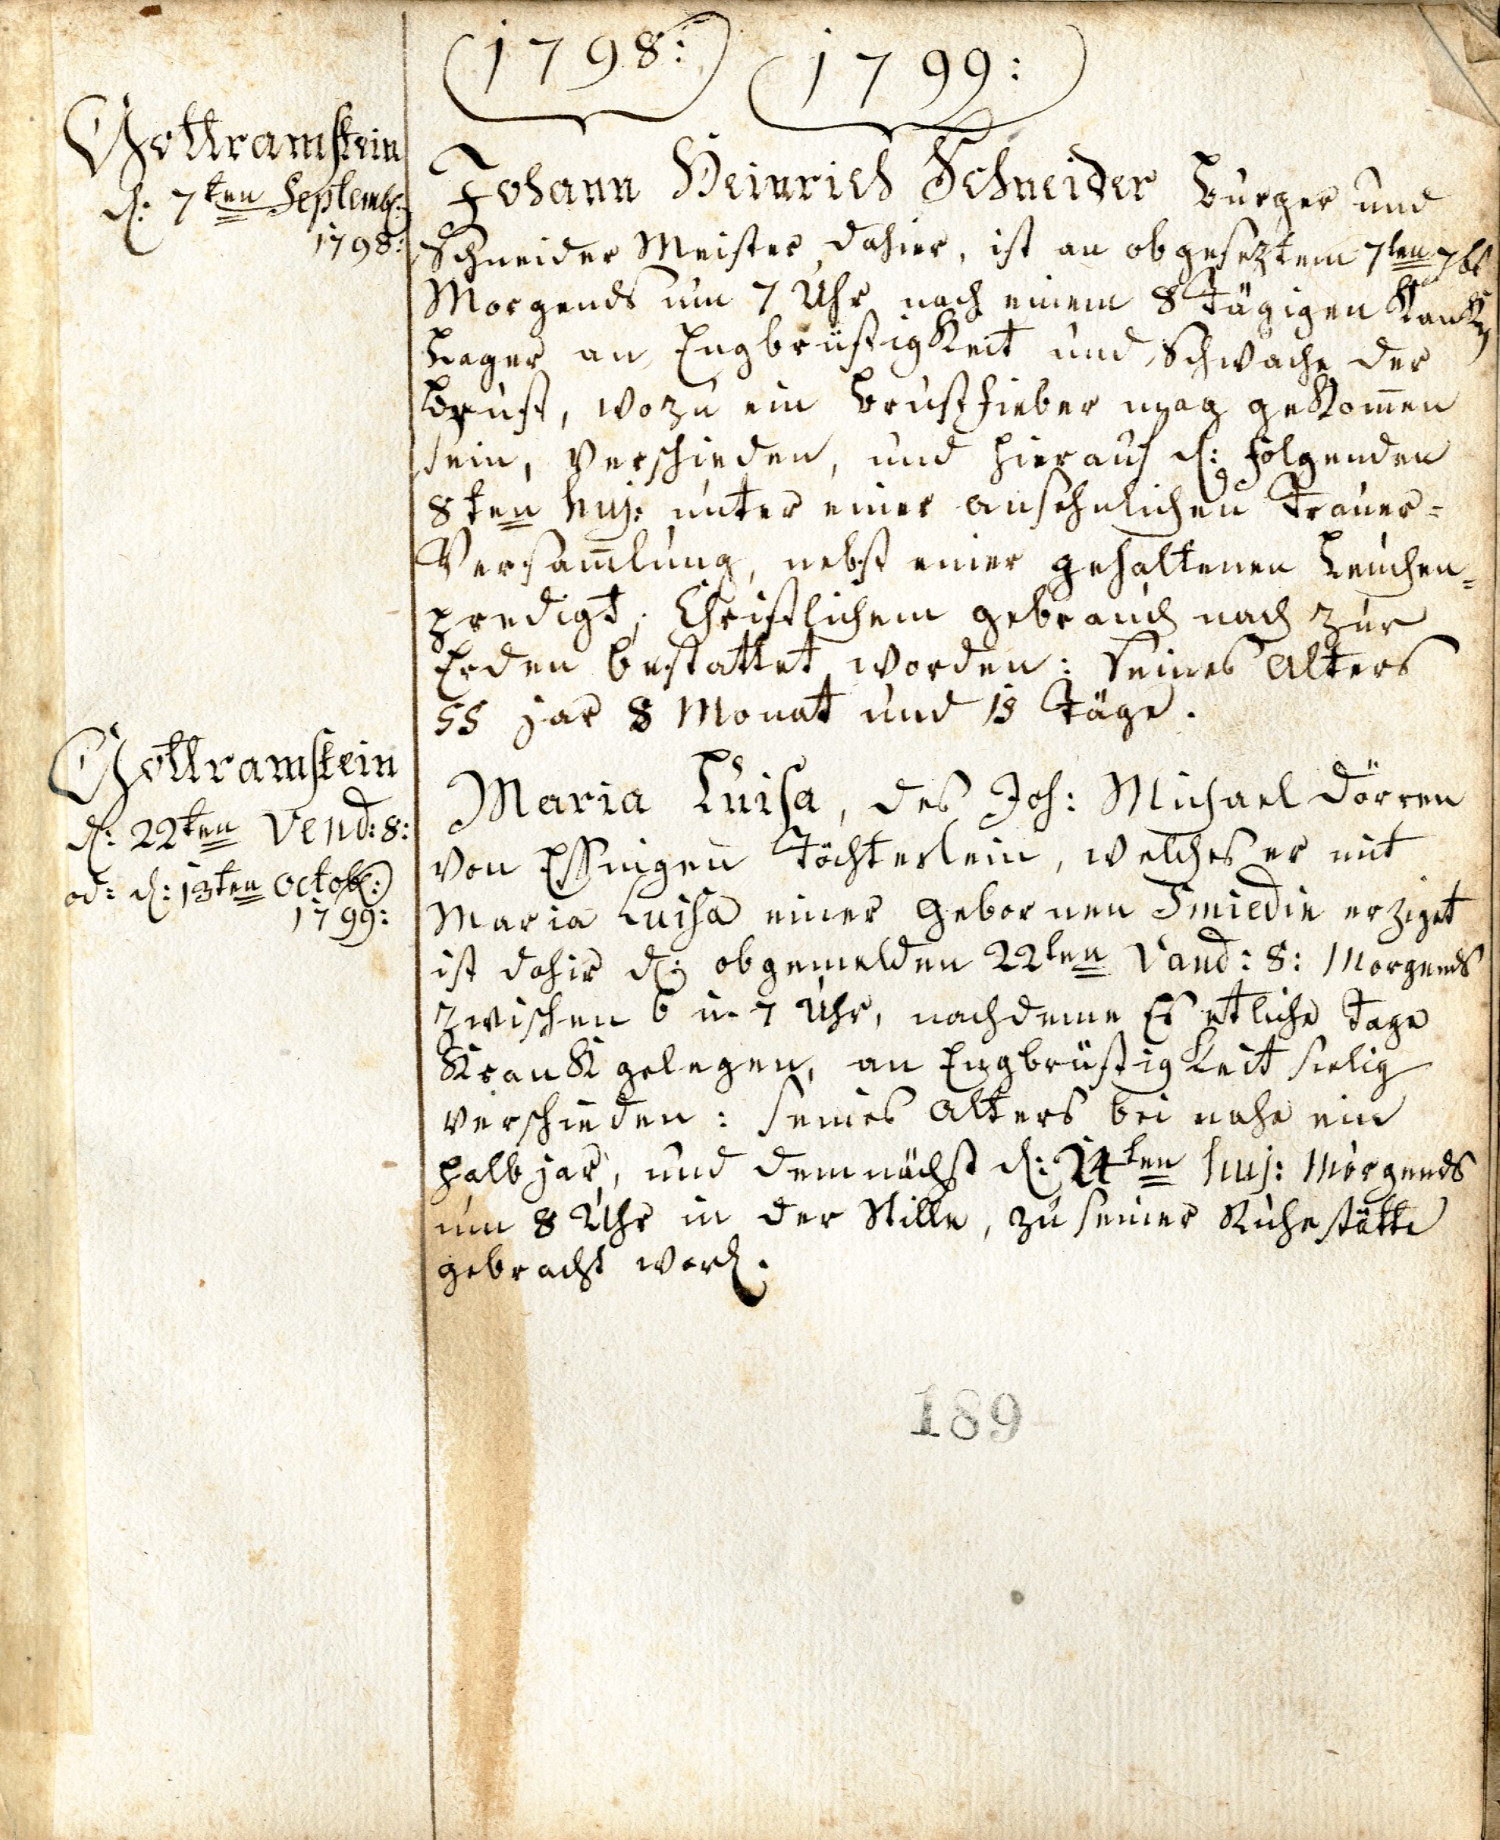 1798: 1799:
Gottramstein
d: 7ten Septembr:
1798:
Johann Heinrich Schneider Burger und
Schneider Meister dahier, ist an obgeseztem 7ten 7br
Morgends um 7 Uhr nach einem 8 Tägigen Krank
Lager an Engbrüstigkeit und Schwache der
Brust, wozu ein Brustfieber mag gekom̄en
sein, verschieden, und hierauf d: folgenden
8ten huj: unter einer ansehnlichen Trauer=
Versam̄lung, nebst einer gehaltenen Leichen=
predigt, Christlichem gebrauch nach zur
Erden bestattet worden: seines Alters
55 jar 8 Monat und 15 Täge.
Gottramstein
d: 22ten Vend: 8:
od: d: 13ten Octobr:
1799:
Maria Luisa, des Joh: Michael Dörren
von Essingen Töchterlein, welches er mit
Maria Luisa einer gebornen Smiedin erziget
ist dahir d: obgemelden 22ten Vand: 8: Morgends
zwischen 6 u. 7 Uhr, nachdeme Es etliche Tage
Krank gelegen, an Engbrüstigkeit seelig
verschieden: seines Alters bei nahe ein
halb jar, und demnächst d: 14ten huj: Morgends
um 8 Uhr in der Stille, zu seiner Ruhestätte
gebracht word.
189